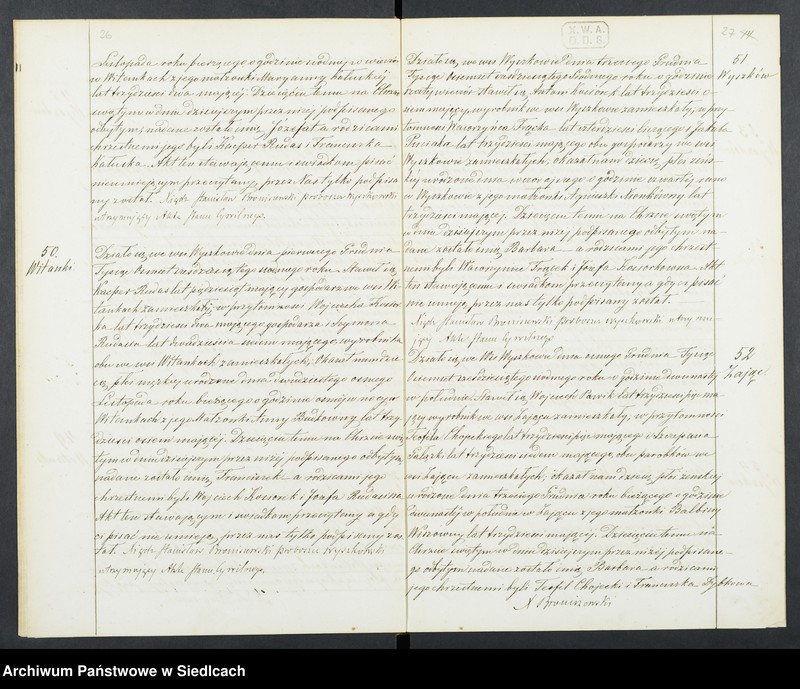 26
Listopada roku bieżącego o godzinie siódmej w wieczór
w Witankach z jego małżonki Maryanny
lat trzydzieści dwa mającej. Dziecięciu temu na Chrzcie
świętym w dniu dzisiejszym przez niżej podpisanego
odbytym nadane zostało imię Józefat a rodzicami
chrzestnemi jego byli Kacper Rudaś i Franciszka
Kałuska. Akt ten stawającemu i świadkom pisać
nieumiejącym przeczytany, przez Nas tylko podpisa-
ny został. Xiądz Stanisław Broniszewski Proboszcz Wyszkowski
utrzymujący Akta Stanu Cywilnego.
50.
Witanki
Działo się we wsi Wyszkowie dnia pierwszego Grudnia
Tysiąc Ośmset sześćdziesiątego siódmego roku. Stawił się
Kacper Rudaś lat pięćdziesiąt mający gospodarz we wsi Wi-
tankach zamieszkały, w przytomności Wojciecha
lat trzydzieści dwa mającego gospodarza i Szymona
Rudasia lat dwadzieścia siedm mającego, wyrobnika
obu we wsi Witankach zamieszkałych; Okazał nam dzie-
cię płci męzkiej urodzone dnia dwudziestego osmego
Listopada roku bieżącego o godzinie ósmej w nocy w
Witankach z jego Małżonki Anny lat trzy-
dzieści osiem mającej. Dziecięciu temu na Chrzcie świę-
tym w dniu dzisiejszym przez niżej podpisanego odbytym
nadane zostało imię Franciszek a rodzicami jego
chrzestnemi byli Wojciech Kosiorek i Józefa Rudasika
Akt ten stawającym i świadkom przeczytany a gdy
ci pisać nie umieją, przez nas tylko podpisany zos-
tał. Xiądz Stanisław Broniszewski Proboszcz Wyszkowski
utrzymujący Akta Stanu Cywilnego.
X. W. A.
D. G. S.
27 44
51
Wyszków
Działo się we wsi Wyszkowie dnia trzeciego Grudnia
Tysiąc Ośmset sześćdziesiątego siódmego roku o godzinie
Stawił się Antoni lat trzydzieści o-
siem mający, wyrobnik we wsi Wyszkowie zamieszkały, w przy-
tomności Wawrzyńca Trącka lat czterdzieści liczącego i Jakuba
lat trzydzieści mającego obu gospodarzy we wsi
Wyszkowie zamieszkałych, okazał nam dziecię płci żeńs-
kiej urodzone dnia wczorajszego o godzinie czwartej rano
w Wyszkowie z jego małżonki Agnieszki lat
trzydzieści mającej. Dziecięciu temu na Chrzcie świętym
w dniu dzisiejszym przez niżej podpisanego odbytym na-
dane zostało imię Barbara a rodzicami jego chrzest-
nemi byli Wawrzyniec Trącek i Józefa Kosiorkowna. Akt
ten stawającemu i świadkom przeczytany a gdy ci pisać
nie umieją, przez nas tylko podpisany został.
Xiądz Stanisław Broniszewski Proboszcz Wyszkowski utrzymu-
jący Akta Stanu Cywilnego
52
Zając
Działo się we Wsi Wyszkowie dnia ósmego Grudnia Tysiąc
Ośmset sześćdziesiątego siódmego roku o godzinie dwunastej
w południe. Stawił się Wojciech lat trzydzieści pięć ma-
jący wyrobnik we wsi Zającu zamieszkały, w przytomności
Teofila Chojeckiego lat trzydzieści pięć mającego i Szczepana
lat trzydzieści siedem mającego, obu parobków we
wsi Zającu zamieszkałych, okazał nam dziecię płci żeńskiej
urodzone dnia trzeciego Grudnia roku bieżącego o godzinie
dwunastej w południe w Zającu z jego małżonki Balbiny
lat trzydzieści mającej. Dziecięciu temu na
Chrzcie świętym w dniu dzisiejszym przez niżej podpisane-
go odbytym nadane zostało imię Barbara a rodzicami
jego chrzestnemi byli Teofil Chojecki i Franciszka Dybkowa
X Broniszewski
Archiwum Państwowe w Siedlcach